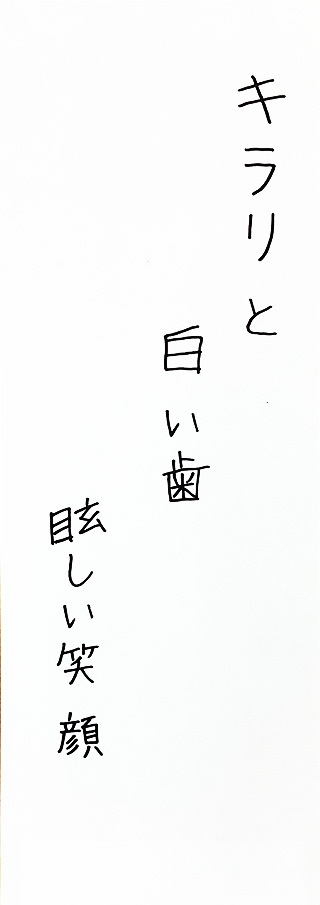 キラリと
白い歯
眩しい笑顔